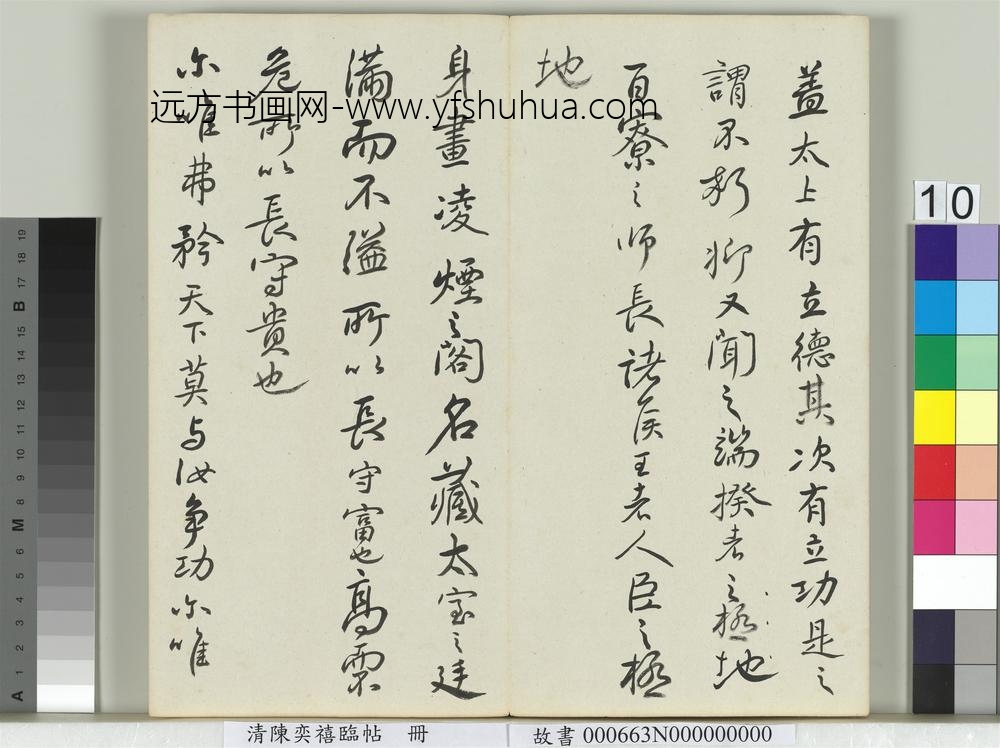 蓋太上有立德其次有立功是之
謂不朽抑又聞之端揆者之極地
百寮之师長诸侯王者人臣之極
地
身畫凌煙之閣名藏太室之廷
滿而不溢所以長守富也高而不
危所以長守貴也
尓唯弗矜天下莫与汝争功尓唯
远方书画网-www.yfshuhua.com
10
A 1 2 3 4 5 6 M 8 9 10 11 12 13 14 15 B 17 18 19
清陳奕禧臨帖 冊
故書 000663N000000000